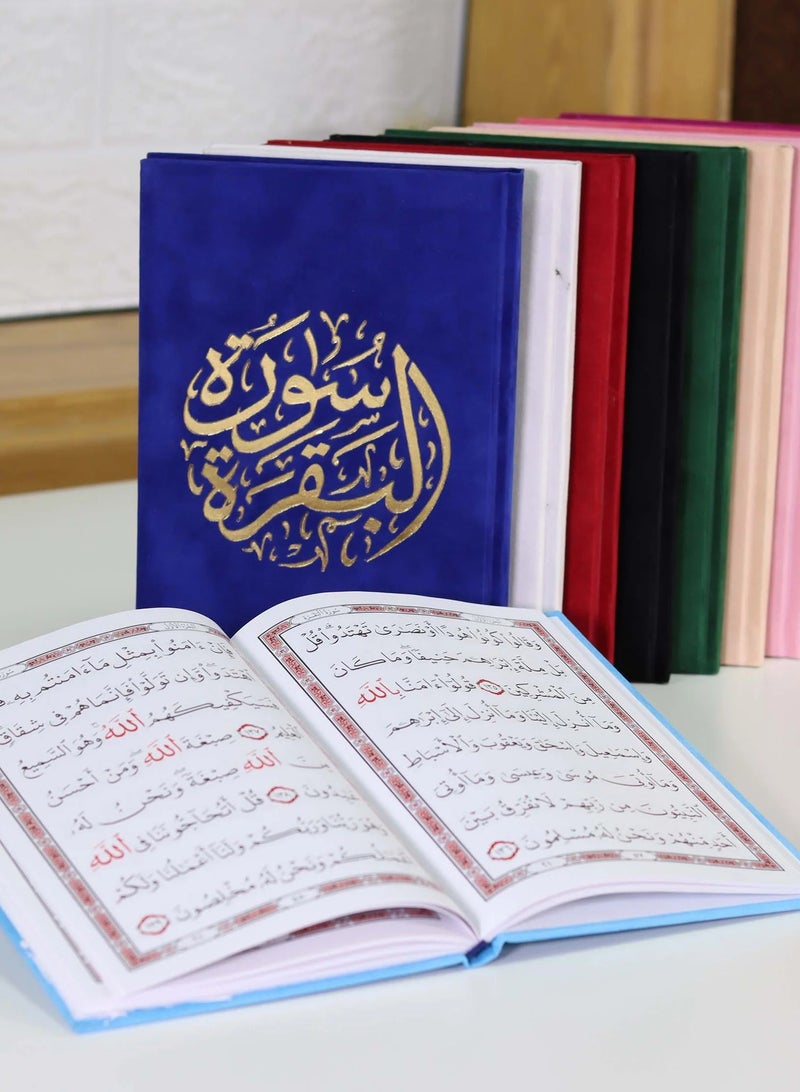 سُورَةُ
البَقَرَةِ
سورة البقرة
وَقَالُوا۟ كُونُوا۟ هُودًا أَوْ نَصَـٰرَىٰ تَهْتَدُوا۟ ۗ قُلْ
بَلْ مِلَّةَ إِبْرَٰهِـۧمَ حَنِيفًا ۖ وَمَا كَانَ
مِنَ ٱلْمُشْرِكِينَ ١٣٥ قُولُوٓا۟ ءَامَنَّا بِٱللَّهِ
وَمَآ أُنزِلَ إِلَيْنَا وَمَآ أُنزِلَ إِلَىٰٓ إِبْرَٰهِـۧمَ
وَإِسْمَـٰعِيلَ وَإِسْحَـٰقَ وَيَعْقُوبَ وَٱلْأَسْبَاطِ
وَمَآ أُوتِىَ مُوسَىٰ وَعِيسَىٰ وَمَآ أُوتِىَ
ٱلنَّبِيُّونَ مِن رَّبِّهِمْ لَا نُفَرِّقُ بَيْنَ
أَحَدٍ مِّنْهُمْ وَنَحْنُ لَهُۥ مُسْلِمُونَ ١٣٦
ءَامَنُوا۟ بِمِثْلِ مَآ ءَامَنتُم بِهِۦ
ٱهْتَدَوا۟ ۖ وَّإِن تَوَلَّوْا۟ فَإِنَّمَا هُمْ فِى شِقَاقٍ
فَسَيَكْفِيكَهُمُ ٱللَّهُ ۚ وَهُوَ ٱلسَّمِيعُ
١٣٧ صِبْغَةَ ٱللَّهِ ۖ وَمَنْ أَحْسَنُ
ٱللَّهِ صِبْغَةً ۖ وَنَحْنُ لَهُۥ
١٣٨ قُلْ أَتُحَآجُّونَنَا فِى ٱللَّهِ
وَهُوَ رَبُّنَا وَرَبُّكُمْ وَلَنَآ أَعْمَـٰلُنَا وَلَكُمْ
أَعْمَـٰلُكُمْ وَنَحْنُ لَهُۥ مُخْلِصُونَ ١٣٩